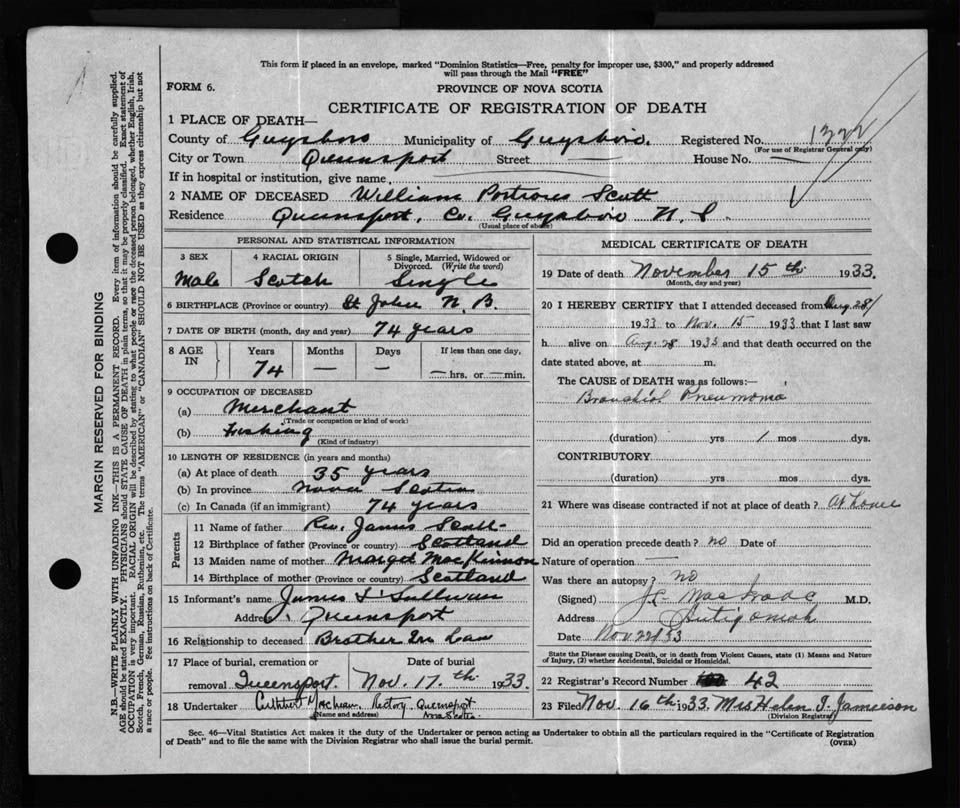 This form if placed in an envelope, marked "Dominion Statistics—Free, penalty for improper use, $300," and properly addressed
will pass through the Mail "FREE"
FORM 6.
PROVINCE OF NOVA SCOTIA
CERTIFICATE OF REGISTRATION OF DEATH
1 PLACE OF DEATH—
County of Guysboro Municipality of Guysboro. Registered No.
(For use of Registrar General only)
City or Town Queensport Street — House No. —
If in hospital or institution, give name
2 NAME OF DECEASED William Scott
Residence Queensport, Co. Guysboro N. S.
(Usual place of abode)
PERSONAL AND STATISTICAL INFORMATION
3 SEX 4 RACIAL ORIGIN 5 Single, Married, Widowed or
Divorced. (Write the word)
Male Scotch Single
6 BIRTHPLACE (Province or country) St John N. B.
7 DATE OF BIRTH (month, day and year) 74 years
8 AGE IN Years Months Days If less than one day,
74 — — — hrs. or — min.
9 OCCUPATION OF DECEASED
(a) Merchant
(Trade or occupation or kind of work)
(b) Fishing
(Kind of industry)
10 LENGTH OF RESIDENCE (in years and months)
(a) At place of death 35 years
(b) In province Nova Scotia
(c) In Canada (if an immigrant) 74 years
Parents
11 Name of father Rev. James Scott
12 Birthplace of father (Province or country) Scotland
13 Maiden name of mother Marget MacKinnon
14 Birthplace of mother (Province or country) Scotland
15 Informant's name James O'Sullivan
Address Queensport
16 Relationship to deceased Brother In Law
17 Place of burial, cremation or Date of burial
removal Queensport. Nov. 17.th 1933.
18 Undertaker Rectory, Queensport
(Name and address) Nova Scotia
MEDICAL CERTIFICATE OF DEATH
19 Date of death November 15th 1933.
(Month, day and year)
20 I HEREBY CERTIFY that I attended deceased from Aug. 28/
1933 to Nov. 15 1933 that I last saw
h alive on Aug. 28 1933 and that death occurred on the
date stated above, at m.
The CAUSE OF DEATH was as follows:—
Bronchial Pneumonia
(duration) yrs 1 mos dys.
CONTRIBUTORY
(duration) yrs. mos. dys.
21 Where was disease contracted if not at place of death? At home
Did an operation precede death? no Date of
Nature of operation —
Was there an autopsy? no
(Signed) MacIsaac M.D.
Address Antigonish
Date Nov 22nd 33
State the Disease causing Death, or in death from Violent Causes, state (1) Means and Nature
of Injury, (2) whether Accidental, Suicidal or Homicidal.
22 Registrar's Record Number 42
23 Filed Nov. 16th 1933. Mrs Helen J. Jamieson
(Division Registrar)
Sec. 46—Vital Statistics Act makes it the duty of the Undertaker or person acting as Undertaker to obtain all the particulars required in the "Certificate of Registration
of Death" and to file the same with the Division Registrar who shall issue the burial permit.
(OVER)
MARGIN RESERVED FOR BINDING
N.B.—WRITE PLAINLY WITH UNFADING INK—THIS IS A PERMANENT RECORD. Every item of information should be carefully supplied.
AGE should be stated EXACTLY. PHYSICIANS should STATE CAUSE OF DEATH in plain terms, so that it may be properly classified. Exact statement of
OCCUPATION is very important. RACIAL ORIGIN will be described by stating to what people or race the deceased person belonged, whether English, Irish,
Scotch, French, German, Russian, Ruthenian, etc. The terms "AMERICAN" or "CANADIAN" SHOULD NOT BE USED as they express citizenship but not
a race or people. See instructions on back of Certificate.